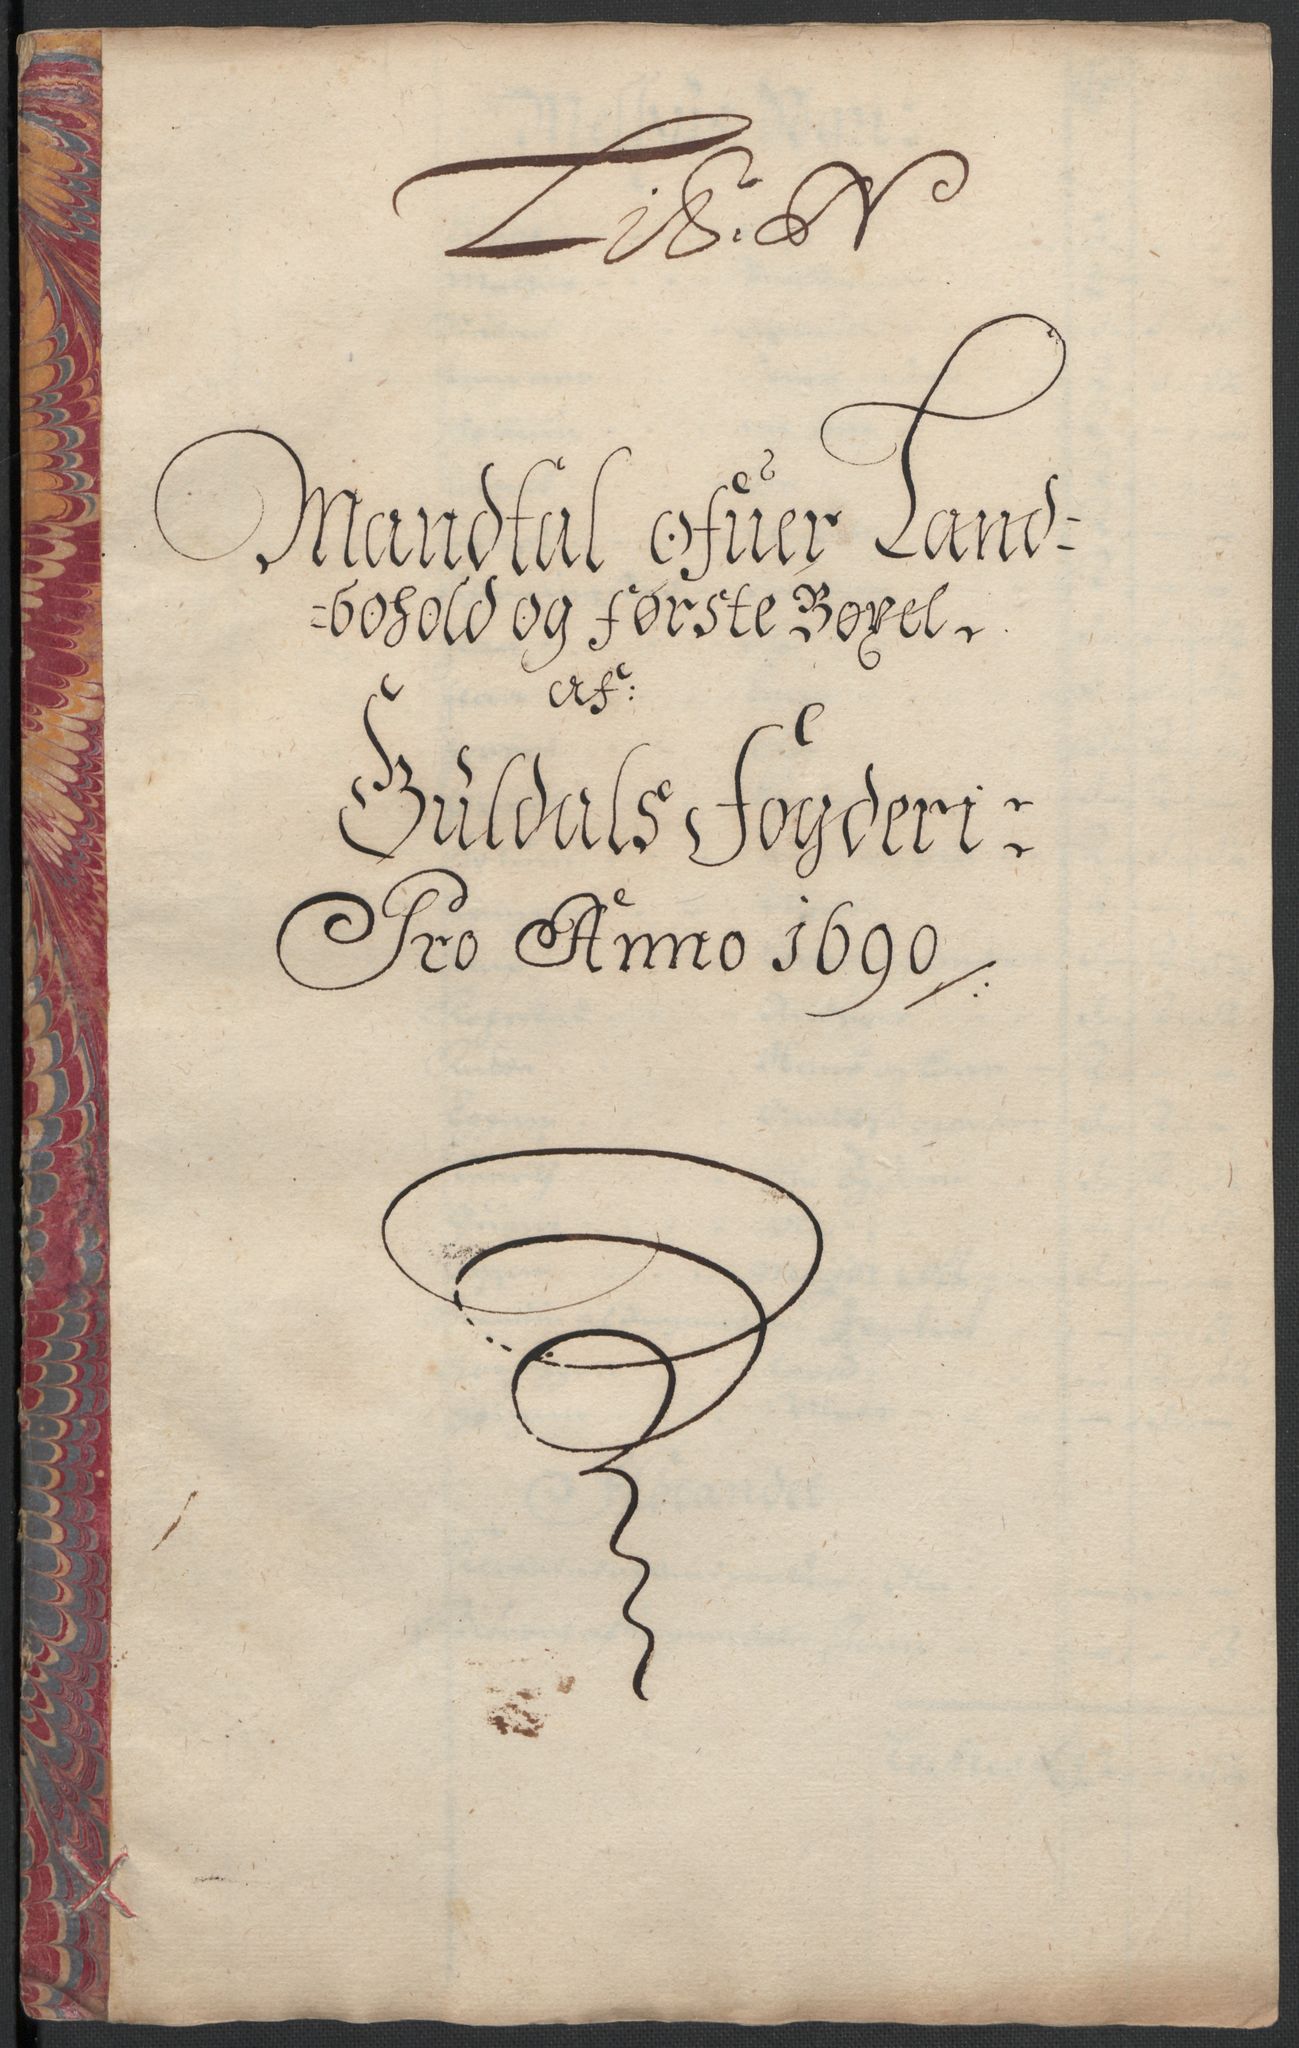 Lit: N
Mandtal ofuer Land-
=bohold og første Boxel.
Af:
Guldals Fogderi:
Pro Anno 1690/: